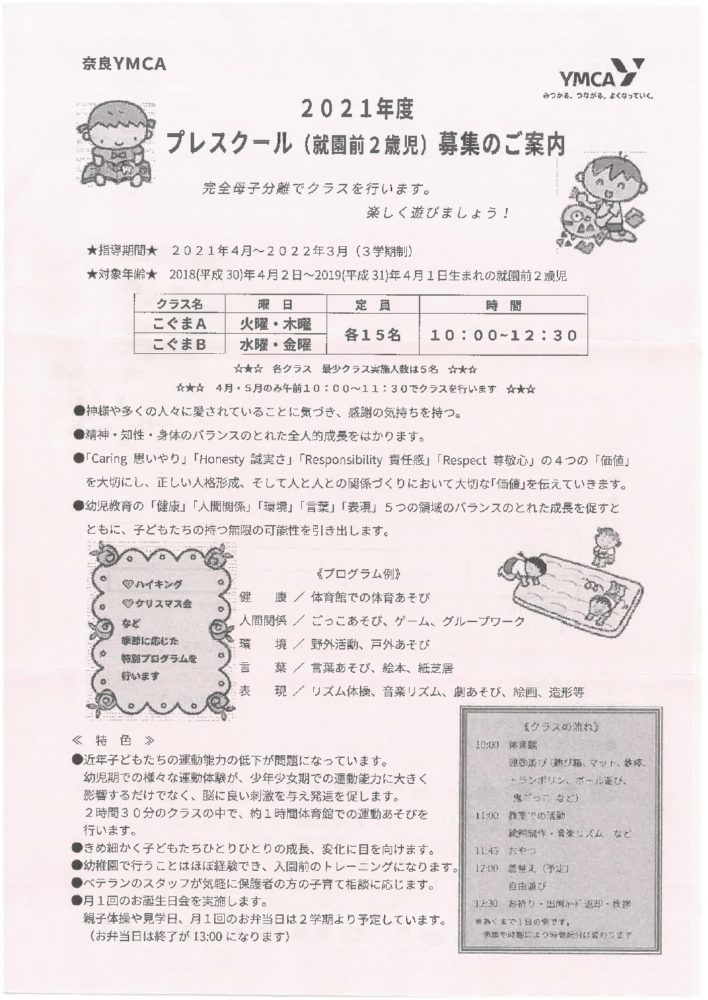 奈良YMCA
YMCA
みつかる。つながる。よくなっていく。
2021年度
プレスクール（就園前2歳児）募集のご案内
完全母子分離でクラスを行います。
楽しく遊びましょう！
★指導期間★　2021年4月～2022年3月（3学期制）
★対象年齢★　2018(平成30)年4月2日～2019(平成31)年4月1日生まれの就園前2歳児
クラス名　曜　日　定　員　時　間
こぐまA　火曜・木曜　各15名　10：00~12：30
こぐまB　水曜・金曜
☆★☆　各クラス　最少クラス実施人数は5名　☆★☆
☆★☆　4月・5月のみ午前10：00～11：30でクラスを行います　☆★☆
●神様や多くの人々に愛されていることに気づき、感謝の気持ちを持つ。
●精神・知性・身体のバランスのとれた全人的成長をはかります。
●「Caring 思いやり」「Honesty 誠実さ」「Responsibility 責任感」「Respect 尊敬心」の4つの「価値」
を大切にし、正しい人格形成、そして人と人との関係づくりにおいて大切な「価値」を伝えていきます。
●幼児教育の「健康」「人間関係」「環境」「言葉」「表現」5つの領域のバランスのとれた成長を促すと
ともに、子どもたちの持つ無限の可能性を引き出します。
♡ハイキング
♡クリスマス会
など
季節に応じた
特別プログラムを
行います
《プログラム例》
健　　康 ／ 体育館での体育あそび
人間関係 ／ ごっこあそび、ゲーム、グループワーク
環　　境 ／ 野外活動、戸外あそび
言　　葉 ／ 言葉あそび、絵本、紙芝居
表　　現 ／ リズム体操、音楽リズム、劇あそび、絵画、造形等
≪　特　色　≫
●近年子どもたちの運動能力の低下が問題になっています。
幼児期での様々な運動体験が、少年少女期での運動能力に大きく
影響するだけでなく、脳に良い刺激を与え発達を促します。
2時間30分のクラスの中で、約1時間体育館での運動あそびを
行います。
●きめ細かく子どもたちひとりひとりの成長、変化に目を向けます。
●幼稚園で行うことはほぼ経験でき、入園前のトレーニングになります。
●ベテランのスタッフが気軽に保護者の方の子育て相談に応じます。
●月1回のお誕生日会を実施します。
親子体操や見学日、月1回のお弁当日は2学期より予定しています。
（お弁当日は終了が13:00になります）
《クラスの流れ》
10:00　体育館
運動遊び（跳び箱、マット、鉄棒、
トランポリン、ボール遊び、
鬼ごっこ など）
11:00　教室での活動
絵画製作・音楽リズム　など
11:45　おやつ
12:00　着替え（予定）
自由遊び
12:30　お祈り・出席カード返却・挨拶
※あくまで1日の例です。
季節や時期により時間配分は変わります